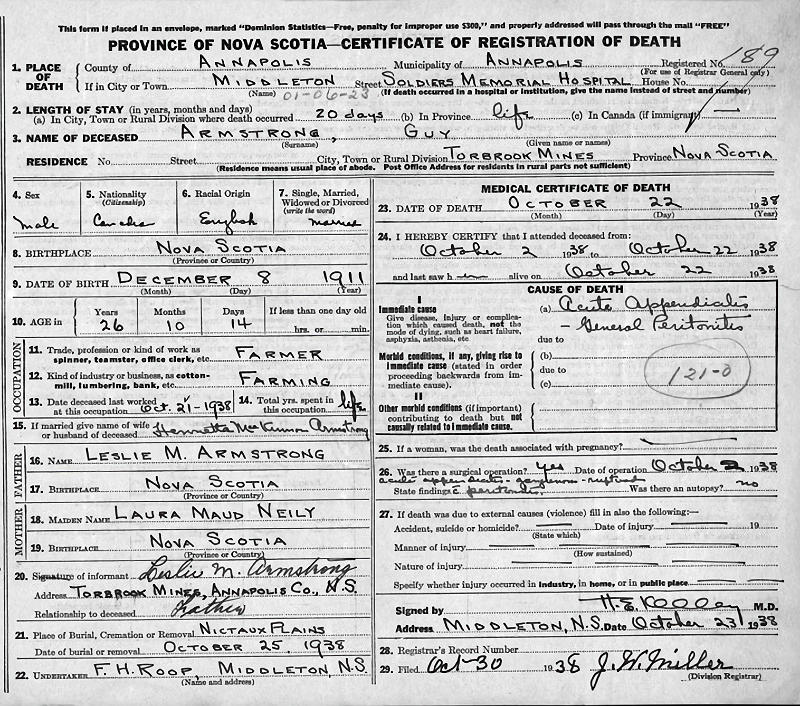 This form if placed in an envelope, marked "Dominion Statistics—Free, penalty for improper use $300," and properly addressed will pass through the mail "FREE"
PROVINCE OF NOVA SCOTIA—CERTIFICATE OF REGISTRATION OF DEATH
1. PLACE OF DEATH
County of ANNAPOLIS Municipality of ANNAPOLIS Registered No. 189
(For use of Registrar General only)
If in City or Town MIDDLETON Street SOLDIERS MEMORIAL HOSPITAL House No.
(Name) 01-06-23 (If death occurred in a hospital or institution, give the name instead of street and number)
2. LENGTH OF STAY (in years, months and days)
(a) In City, Town or Rural Division where death occurred 20 days (b) In Province life (c) In Canada (if immigrant) —
3. NAME OF DECEASED ARMSTRONG, GUY
(Surname) (Given name or names)
RESIDENCE No. Street City, Town or Rural Division TORBROOK MINES Province NOVA SCOTIA
(Residence means usual place of abode. Post Office Address for residents in rural parts not sufficient)
4. Sex
male
5. Nationality
(Citizenship)
Canadian
6. Racial Origin
English
7. Single, Married, Widowed or Divorced
(write the word)
Married
8. BIRTHPLACE NOVA SCOTIA
(Province or Country)
9. DATE OF BIRTH DECEMBER 8 1911
(Month) (Day) (Year)
10. AGE in
Years Months Days If less than one day old
26 10 14 hrs. or min.
OCCUPATION
11. Trade, profession or kind of work as spinner, teamster, office clerk, etc. FARMER
12. Kind of industry or business, as cotton-mill, lumbering, bank, etc. FARMING
13. Date deceased last worked at this occupation Oct. 21-1938
14. Total yrs. spent in this occupation life
15. If married give name of wife or husband of deceased Henrietta MacKinnon Armstrong
FATHER
16. NAME LESLIE M. ARMSTRONG
17. BIRTHPLACE NOVA SCOTIA
(Province or Country)
MOTHER
18. MAIDEN NAME LAURA MAUD NEILY
19. BIRTHPLACE NOVA SCOTIA
(Province or Country)
20. Signature of informant Leslie M. Armstrong
Address TORBROOK MINES, ANNAPOLIS CO., N.S.
Relationship to deceased Father
21. Place of Burial, Cremation or Removal NICTAUX PLAINS
Date of burial or removal OCTOBER 25, 1938
22. UNDERTAKER F. H. ROOP, MIDDLETON, N.S.
(Name and address)
MEDICAL CERTIFICATE OF DEATH
23. DATE OF DEATH OCTOBER 22 1938
(Month) (Day) (Year)
24. I HEREBY CERTIFY that I attended deceased from:
October 2 1938 to October 22 1938
and last saw h alive on October 22 1938
CAUSE OF DEATH
I
Immediate cause
Give disease, injury or complication which caused death, not the mode of dying, such as heart failure, asphyxia, asthenia, etc.
(a) Acute Appendicitis
- General Peritonitis
due to
Morbid conditions, if any, giving rise to immediate cause (stated in order proceeding backwards from immediate cause).
(b)
due to
(c)
121-0
II
Other morbid conditions (if important) contributing to death but not causally related to immediate cause.
25. If a woman, was the death associated with pregnancy?
26. Was there a surgical operation? yes Date of operation October 2 1938
acute appendicitis - gangrenous - ruptured
State findings c̄ peritonitis. Was there an autopsy? no
27. If death was due to external causes (violence) fill in also the following:—
Accident, suicide or homicide? Date of injury 19
(State which)
Manner of injury
(How sustained)
Nature of injury
Specify whether injury occurred in industry, in home, or in public place
Signed by M.D.
Address MIDDLETON, N.S. Date October 23 1938
28. Registrar's Record Number
29. Filed Oct-30 1938 J. W. Miller
(Division Registrar)